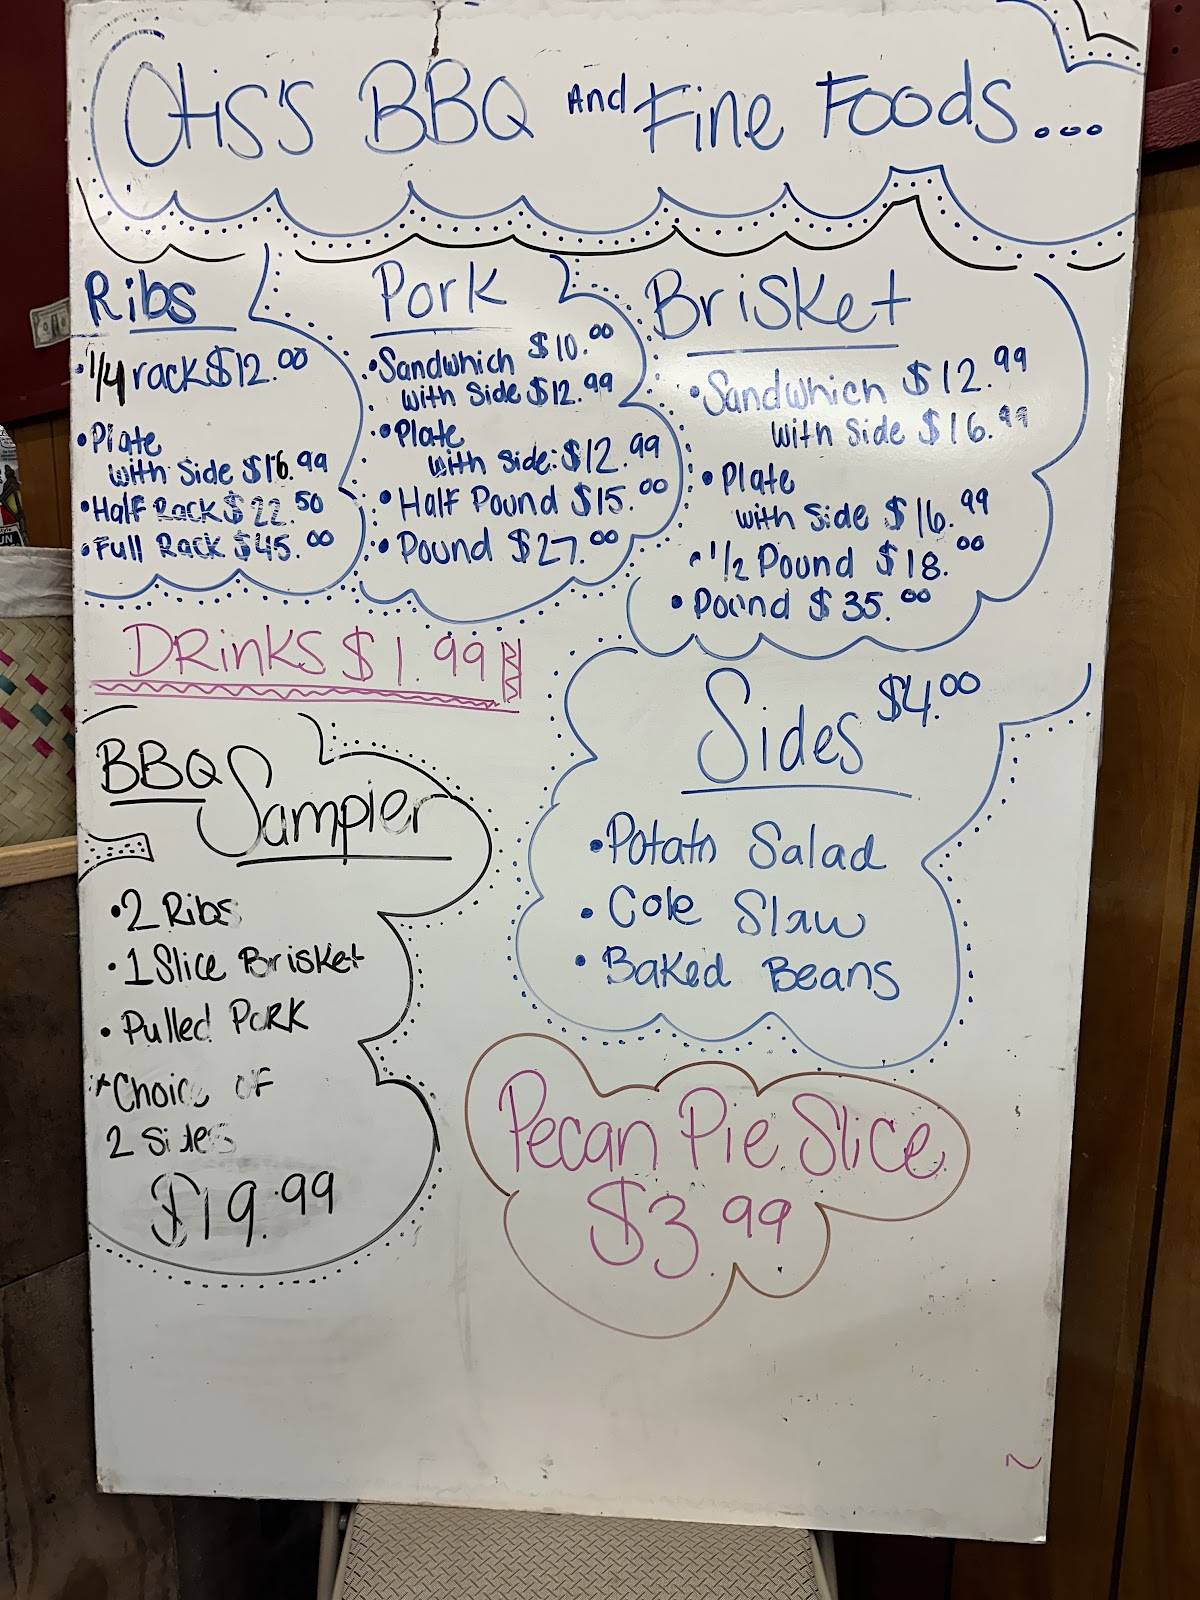 Otis's BBQ And Fine Foods...
Ribs
• 1/4 rack $12.00
• Plate
with Side $16.99
• Half Rack $22.50
• Full Rack $45.00
Pork
• Sandwhich $10.00
with Side $12.99
• Plate
with Side: $12.99
• Half Pound $15.00
• Pound $27.00
Brisket
• Sandwhich $12.99
with Side $16.99
• Plate
with Side $16.99
• 1/2 Pound $18.00
• Pound $35.00
DRinks $1.99
BBQ Sampler
• 2 Ribs
• 1 Slice Brisket
• Pulled Pork
* Choice of
2 Sides
$19.99
Sides $4.00
• Potato Salad
• Cole Slaw
• Baked Beans
Pecan Pie Slice
$3.99